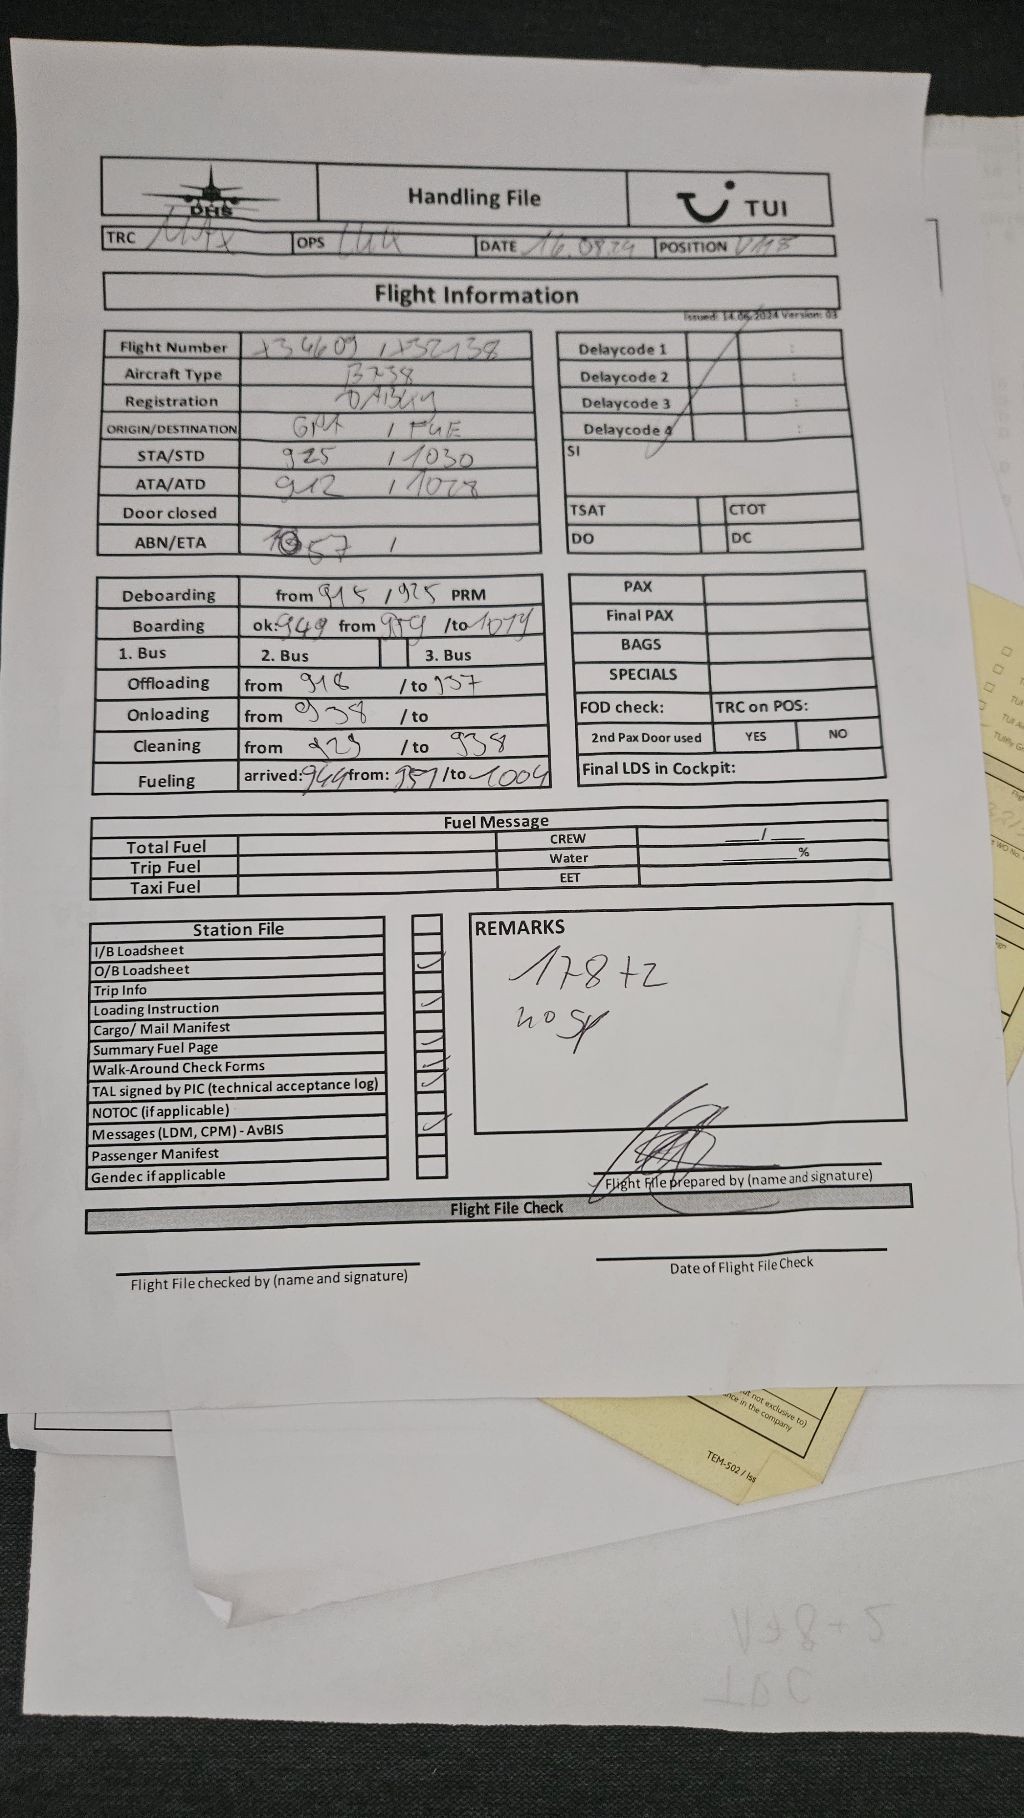 DHS
Handling File
TUI
TRC MAX OPS DATE 16.08.24 POSITION V118
Flight Information
Issued: 14.06.2024 Version: 03
Flight Number X34609 / X32138
Aircraft Type B738
Registration
ORIGIN/DESTINATION / FUE
STA/STD 925 / 1030
ATA/ATD 912 / 1028
Door closed
ABN/ETA 57 /
Delaycode 1 :
Delaycode 2 :
Delaycode 3 :
Delaycode 4 :
SI
TSAT CTOT
DO DC
Deboarding from 915 / 925 PRM
Boarding ok: 949 from 959 /to 1019
1. Bus 2. Bus 3. Bus
Offloading from 918 / to 937
Onloading from 938 / to
Cleaning from 929 / to 938
Fueling arrived: 944 from: 951 /to 1004
PAX
Final PAX
BAGS
SPECIALS
FOD check: TRC on POS:
2nd Pax Door used YES NO
Final LDS in Cockpit:
Fuel Message
Total Fuel CREW ____/____
Trip Fuel Water ________%
Taxi Fuel EET
Station File
I/B Loadsheet
O/B Loadsheet
Trip Info
Loading Instruction
Cargo/ Mail Manifest
Summary Fuel Page
Walk-Around Check Forms
TAL signed by PIC (technical acceptance log)
NOTOC (if applicable)
Messages (LDM, CPM) - AvBIS
Passenger Manifest
Gendec if applicable
REMARKS
178+2
no sp
Flight File prepared by (name and signature)
Flight File Check
Flight File checked by (name and signature)
Date of Flight File Check
ut not exclusive to)
nce in the company
TEM-502 / Iss